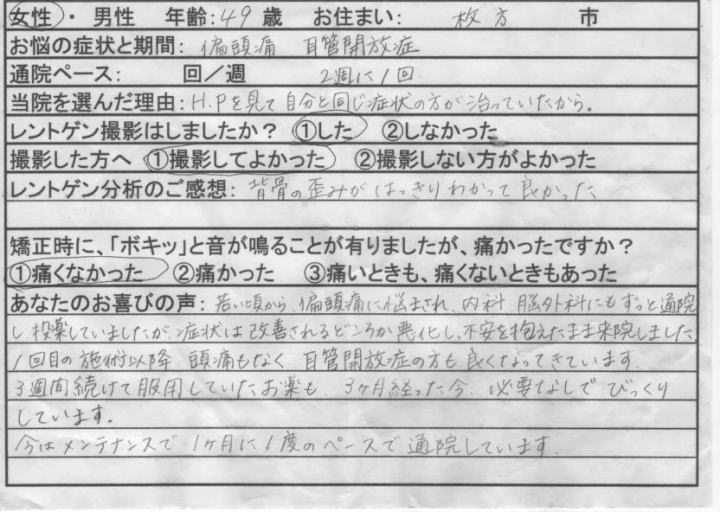 女性 ・ 男性 年齢:49 歳 お住まい: 枚方 市
お悩の症状と期間: 偏頭痛 耳管開放症
通院ペース: 回／週 2週に1回
当院を選んだ理由:H.Pを見て自分と同じ症状の方が治っていたから。
レントゲン撮影はしましたか？ ①した ②しなかった
撮影した方へ ①撮影してよかった ②撮影しない方がよかった
レントゲン分析のご感想: 背骨の歪みがはっきりわかって良かった
矯正時に、「ボキッ」と音が鳴ることが有りましたが、痛かったですか？
①痛くなかった ②痛かった ③痛いときも、痛くないときもあった
あなたのお喜びの声: 若い頃から、偏頭痛に悩まされ、内科 脳外科にもずっと通院
し投薬していましたが、症状は改善されるどころか悪化し、不安を抱えたまま来院しました。
1回目の施術以降 頭痛もなく 耳管開放症の方も良くなってきています。
3週間続けて服用していたお薬も、3ヶ月経った今、必要なしでびっくり
しています。
今はメンテナンスで1ヶ月に1度のペースで通院しています。